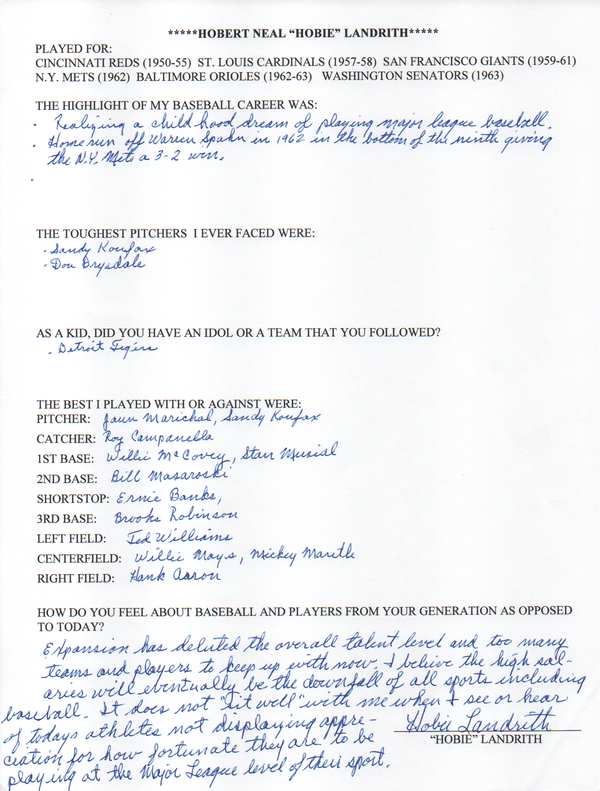 *****HOBERT NEAL “HOBIE” LANDRITH*****
PLAYED FOR:
CINCINNATI REDS (1950-55) ST. LOUIS CARDINALS (1957-58) SAN FRANCISCO GIANTS (1959-61)
N.Y. METS (1962) BALTIMORE ORIOLES (1962-63) WASHINGTON SENATORS (1963)
THE HIGHLIGHT OF MY BASEBALL CAREER WAS:
· Realizing a child hood dream of playing major league baseball.
· Home run off Warren Spahn in 1962 in the bottom of the ninth giving
the N.Y. Mets a 3-2 win.
·
THE TOUGHEST PITCHERS I EVER FACED WERE:
· Sandy Koufax
· Don Drysdale
AS A KID, DID YOU HAVE AN IDOL OR A TEAM THAT YOU FOLLOWED?
· Detroit Tigers
THE BEST I PLAYED WITH OR AGAINST WERE:
PITCHER: Jaun Marichal, Sandy Koufax
CATCHER: Roy Campanella
1ST BASE: Willie McCovey, Stan Musial
2ND BASE: Bill Masaroski
SHORTSTOP: Ernie Banks,
3RD BASE: Brooks Robinson
LEFT FIELD: Ted Williams
CENTERFIELD: Willie Mays, Mickey Mantle
RIGHT FIELD: Hank Aaron
HOW DO YOU FEEL ABOUT BASEBALL AND PLAYERS FROM YOUR GENERATION AS OPPOSED
TO TODAY?
Expansion has deluted the overall talent level and too many
teams and players to keep up with now. I belive the high sal-
aries will eventually be the downfall of all sports including
baseball. It does not "sit well" with me when I see or hear
of todays athletes not displaying appre-
ciation for how fortunate they are to be
playing at the Major League level of their sport.
Hobie Landrith
“HOBIE” LANDRITH